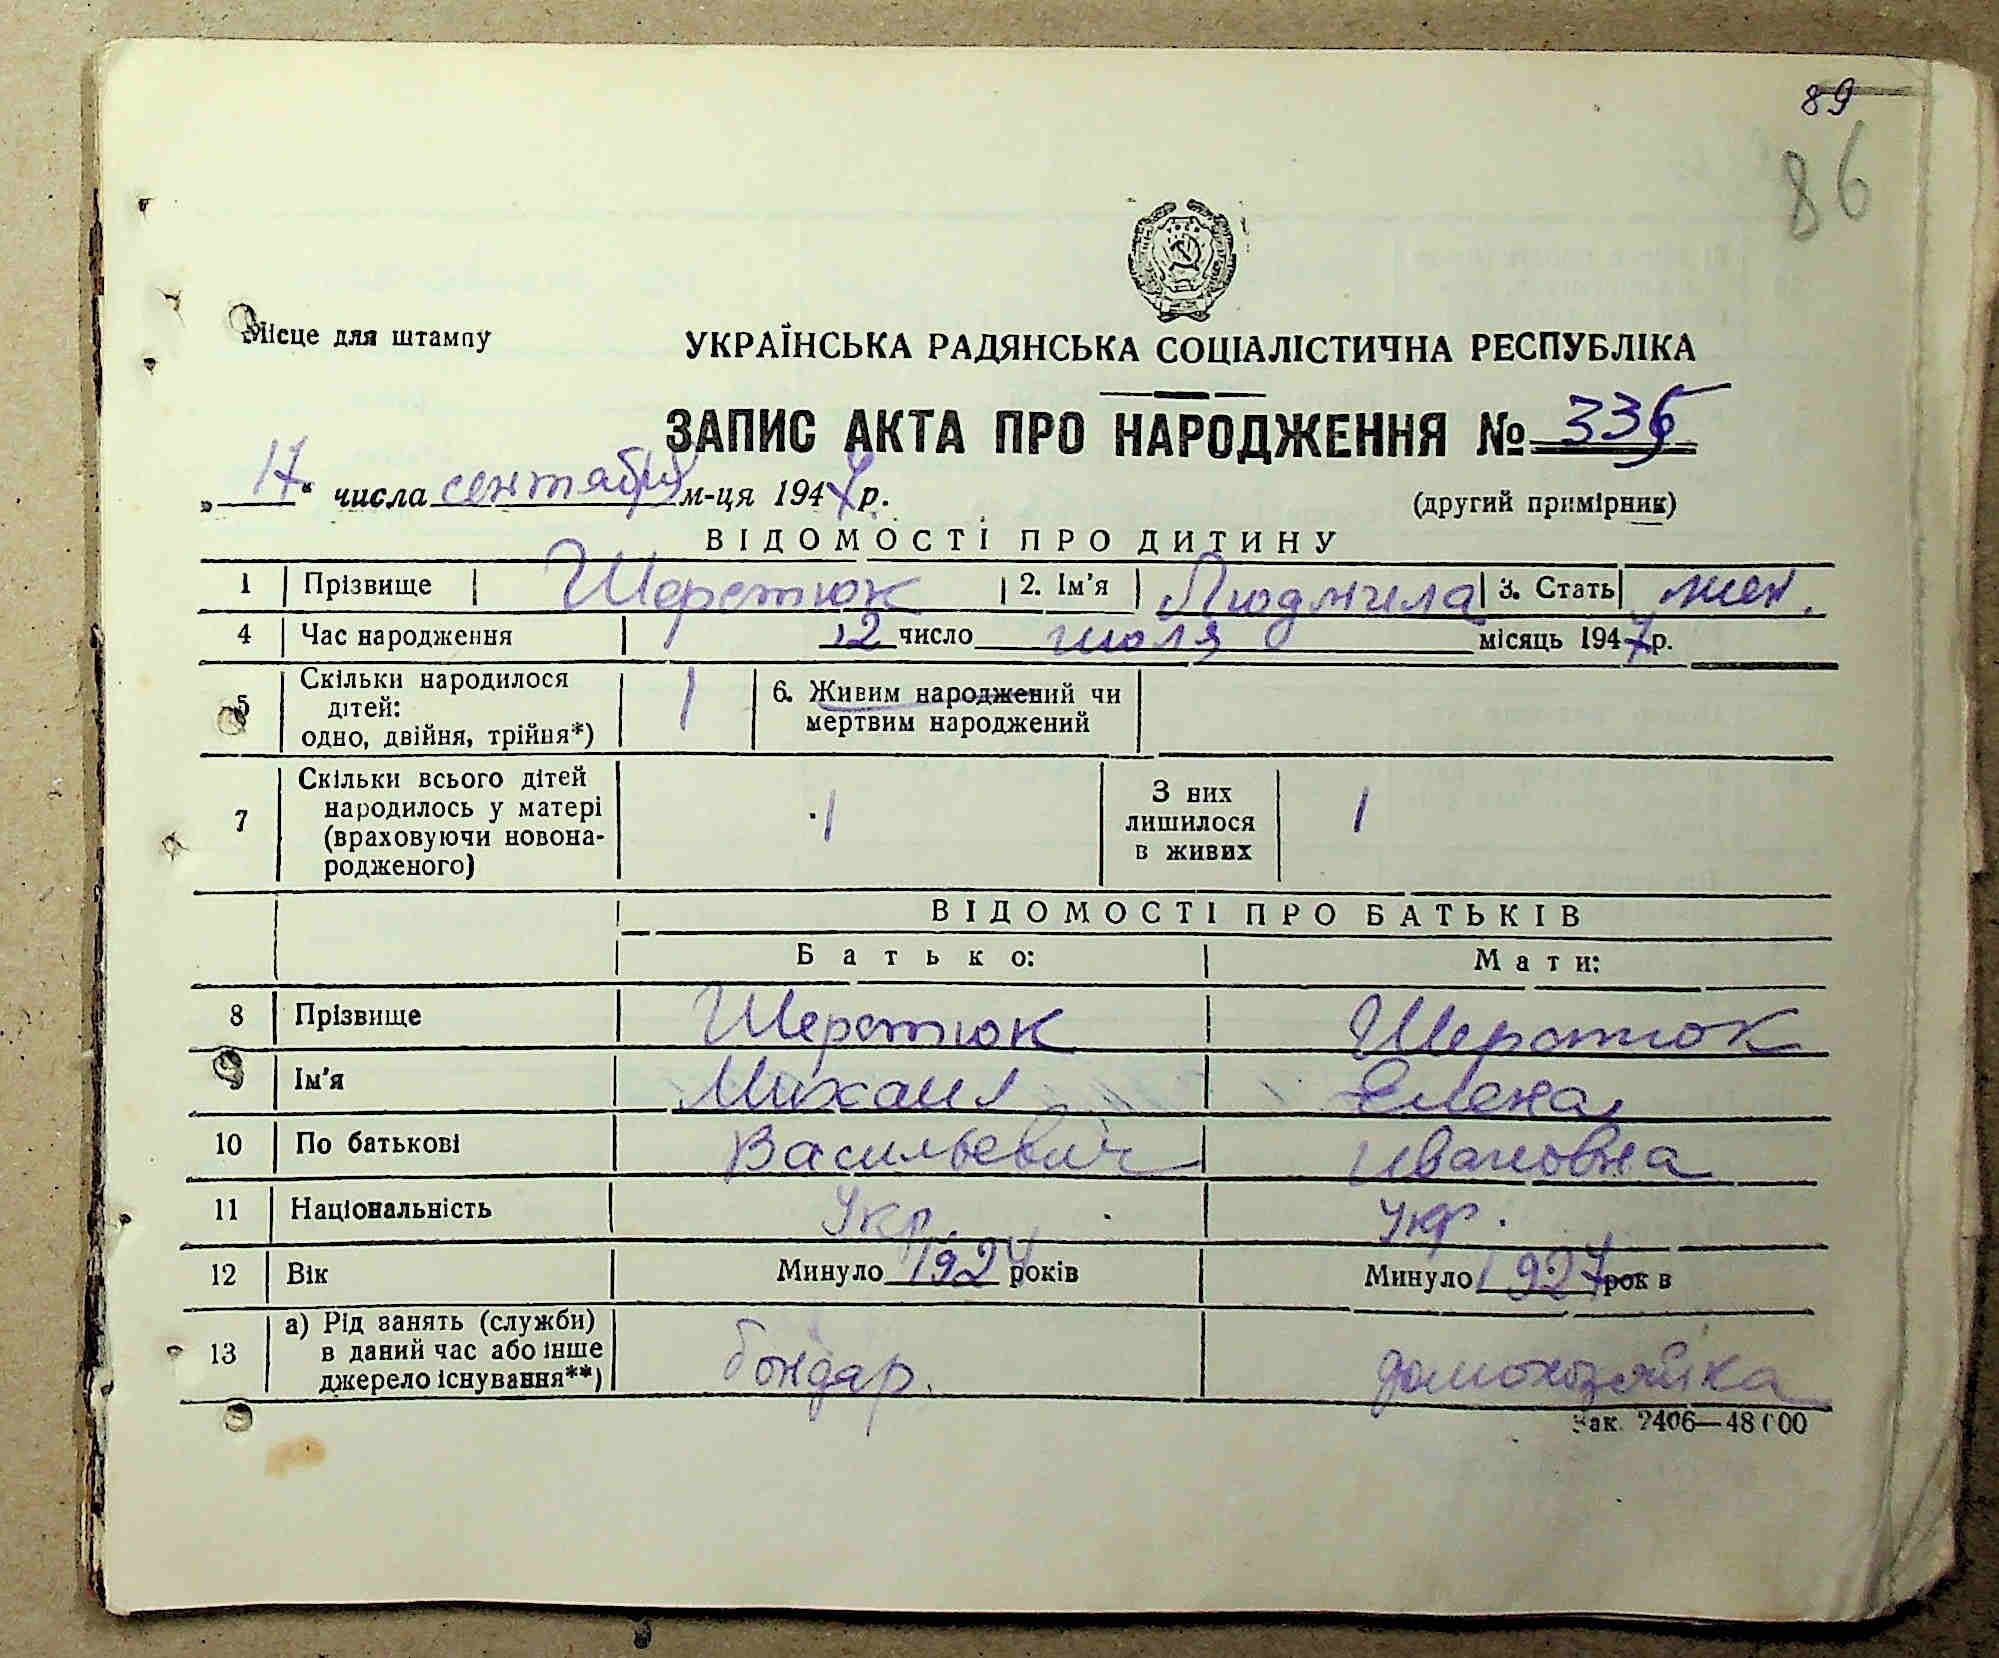 89
86
Місце для штампу
УКРАЇНСЬКА РАДЯНСЬКА СОЦІАЛІСТИЧНА РЕСПУБЛІКА
ЗАПИС АКТА ПРО НАРОДЖЕННЯ № 335
„17“ числа сентября м-ця 1947 р.
(другий примірник)
ВІДОМОСТІ ПРО ДИТИНУ
1 Прізвище Шерстюк 2. Ім'я Людмила 3. Стать жен.
4 Час народження 12 число июля місяць 1947 р.
5 Скільки народилося дітей: одно, двійня, трійня*) 1 6. Живим народжений чи мертвим народжений
7 Скільки всього дітей народилось у матері (враховуючи новонародженого) 1 З них лишилося в живих 1
ВІДОМОСТІ ПРО БАТЬКІВ
Батько: Мати:
8 Прізвище Шерстюк Шерстюк
9 Ім'я Михаил Елена
10 По батькові Васильевич Ивановна
11 Національність Укр. Укр.
12 Вік Минуло 1924 років Минуло 1927 рок в
13 а) Рід занять (служби) в даний час або інше джерело існування**) бондар. домохозяйка
Зак. 2406—48000